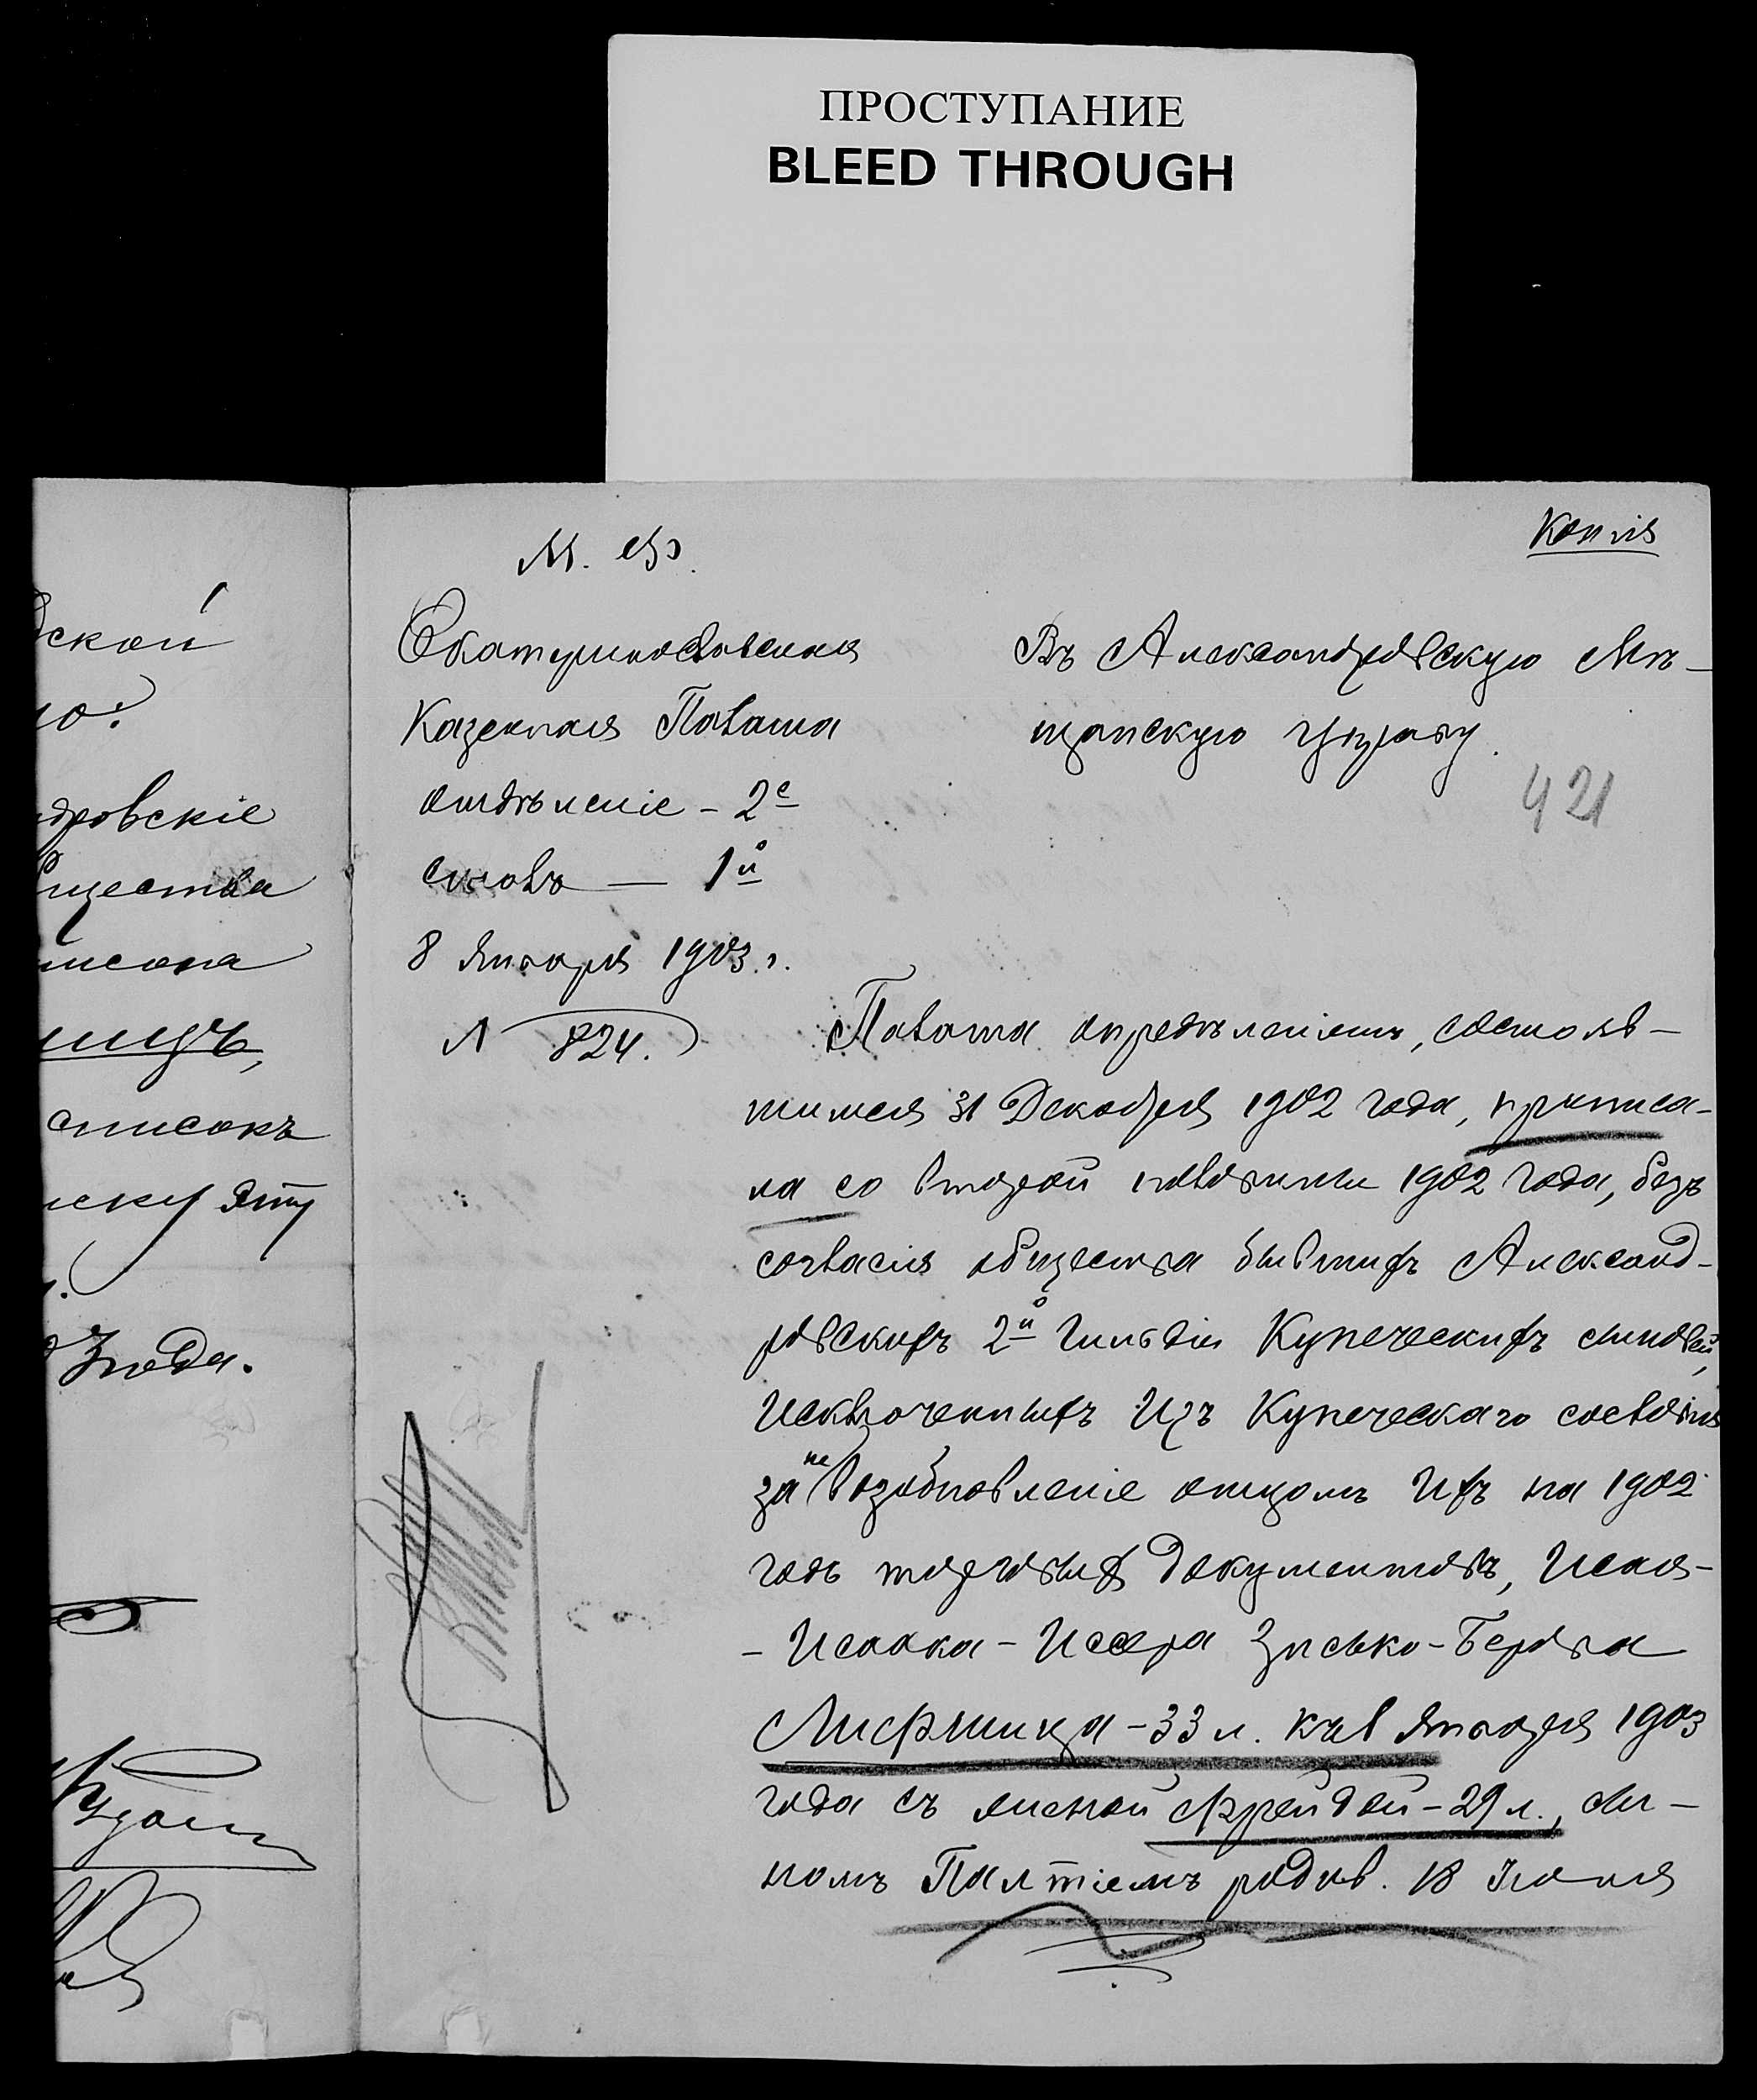 ПРОСТУПАНИЕ
BLEED THROUGH
Копія
М. Ф.
Екатеринославская
Казенная Палата
отдѣленіе - 2е
столъ — 1й
8 Января 1903 г.
№ 824.
Въ Александровскую Мѣ-
щанскую Управу.
421
Палата опредѣленіемъ, состояв-
шимся 31 Декабря 1902 года, приписа-
ла со второй половины 1902 года, безъ
согласія общества бывшихъ Александ-
ровскихъ 2й гильдіи Купеческихъ сыновей,
Исключенныхъ Изъ Купеческаго сословія
за не возобновленіе отцомъ Ихъ на 1902
годъ торговыхъ документовъ,
- Исаака - Иссера Зиско-Берова
Лифшица - 33 л. къ 1 Января 1903
года съ женой Фрейдой - 29 л., сы-
номъ Палтіемъ родив. 18 Іюня
дской
ю:
дровскіе
бщества
списокъ
года.